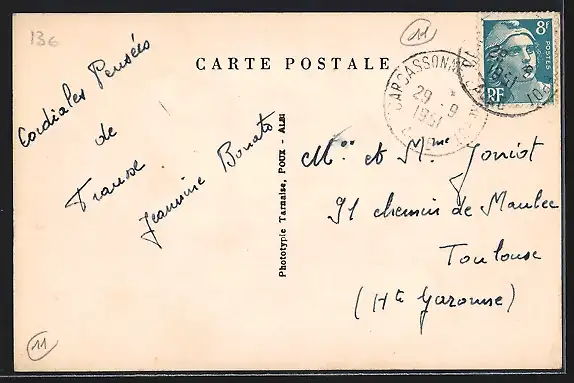 136
11
CARTE POSTALE
8f
POSTES
RF
CARCASSONNE
29 - 9
1951
AUDE
Cordiales Pensées
de
Jeannine Bonato
Phototypie Tarnaise, POUX - ALBI
Mr et Mme Joniot
91 chemin de
Toulouse
(Hte Garonne)
11